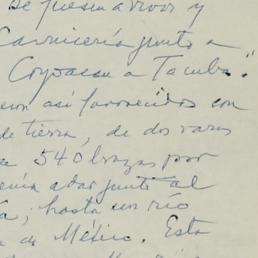 se fuesen a vivir y
Carnicería junto a
Coyoacan a Tacuba."
eron así favorecidos con
de tierra, de dos varas
540 brazas por
junto al
, hasta un río
de México. Esta